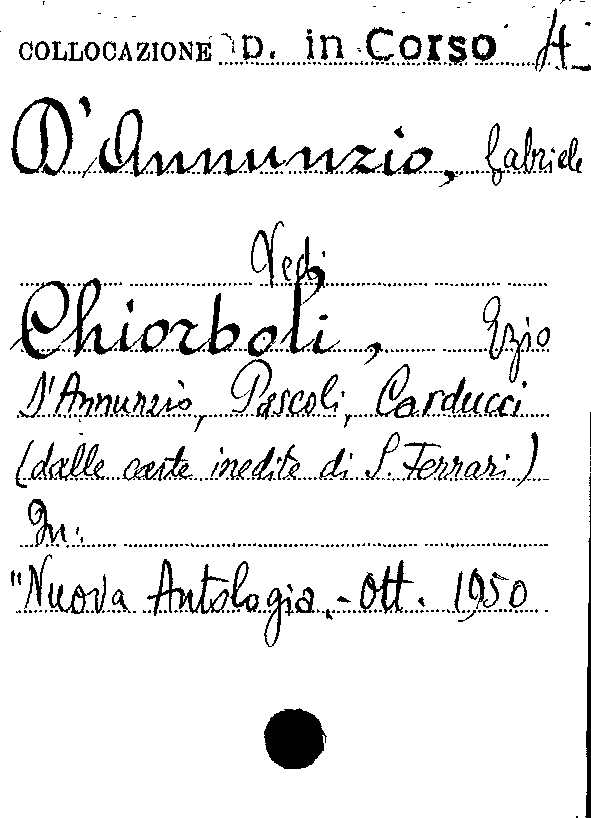 COLLOCAZIONE D. in Corso A
D'Annunzio, Gabriele
Vedi
Chiorboli, Ezio
D'Annunzio, Pascoli, Carducci
(dalle carte inedite di S. Ferrari)
In:
"Nuova Antologia.- Ott. 1950